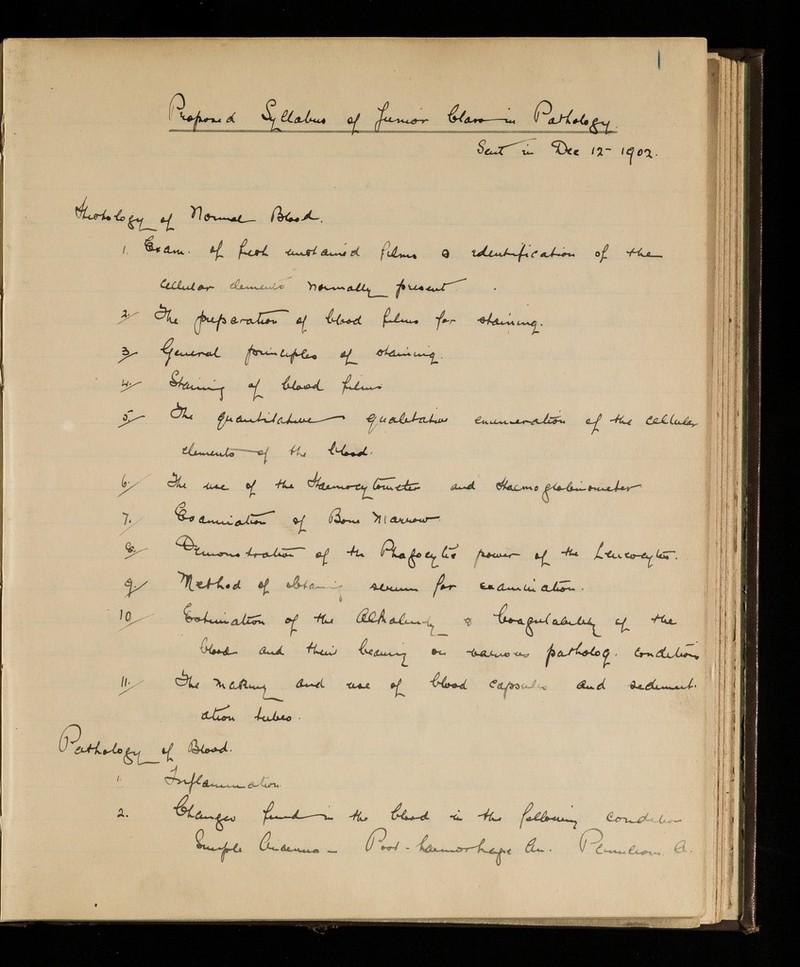 1
Proposed Syllabus of Junior Class in Pathology.
Sent in Dec 12- 1902.
Histology of Normal Blood.
1. Exam. of fresh unstained films & identification of the
Cellular elements normally present.
2/ The preparation of blood films for staining.
3/ General principles of staining.
4/ Staining of blood films
5/ The quantitative qualitative enumeration of the cellular
elements of the blood.
6/ The use of the Haemocytometer and Haemoglobinometer
7/ Examination of Bone Marrow
8/ Demonstration of the Phagocytic power of the Leucocytes.
9/ Method of obtaining serum for examination.
10/ Estimation of the Alkalinity & Coagulability of the
blood and their bearing on various patholog. Conditions
11/ The making and use of blood capsules and sediment-
ation tubes.
Pathology of Blood.
1. Inflammation.
2. Changes found in the blood in the following condition
Simple Anaemia - Post-haemorrhage An. Pernicious. A.